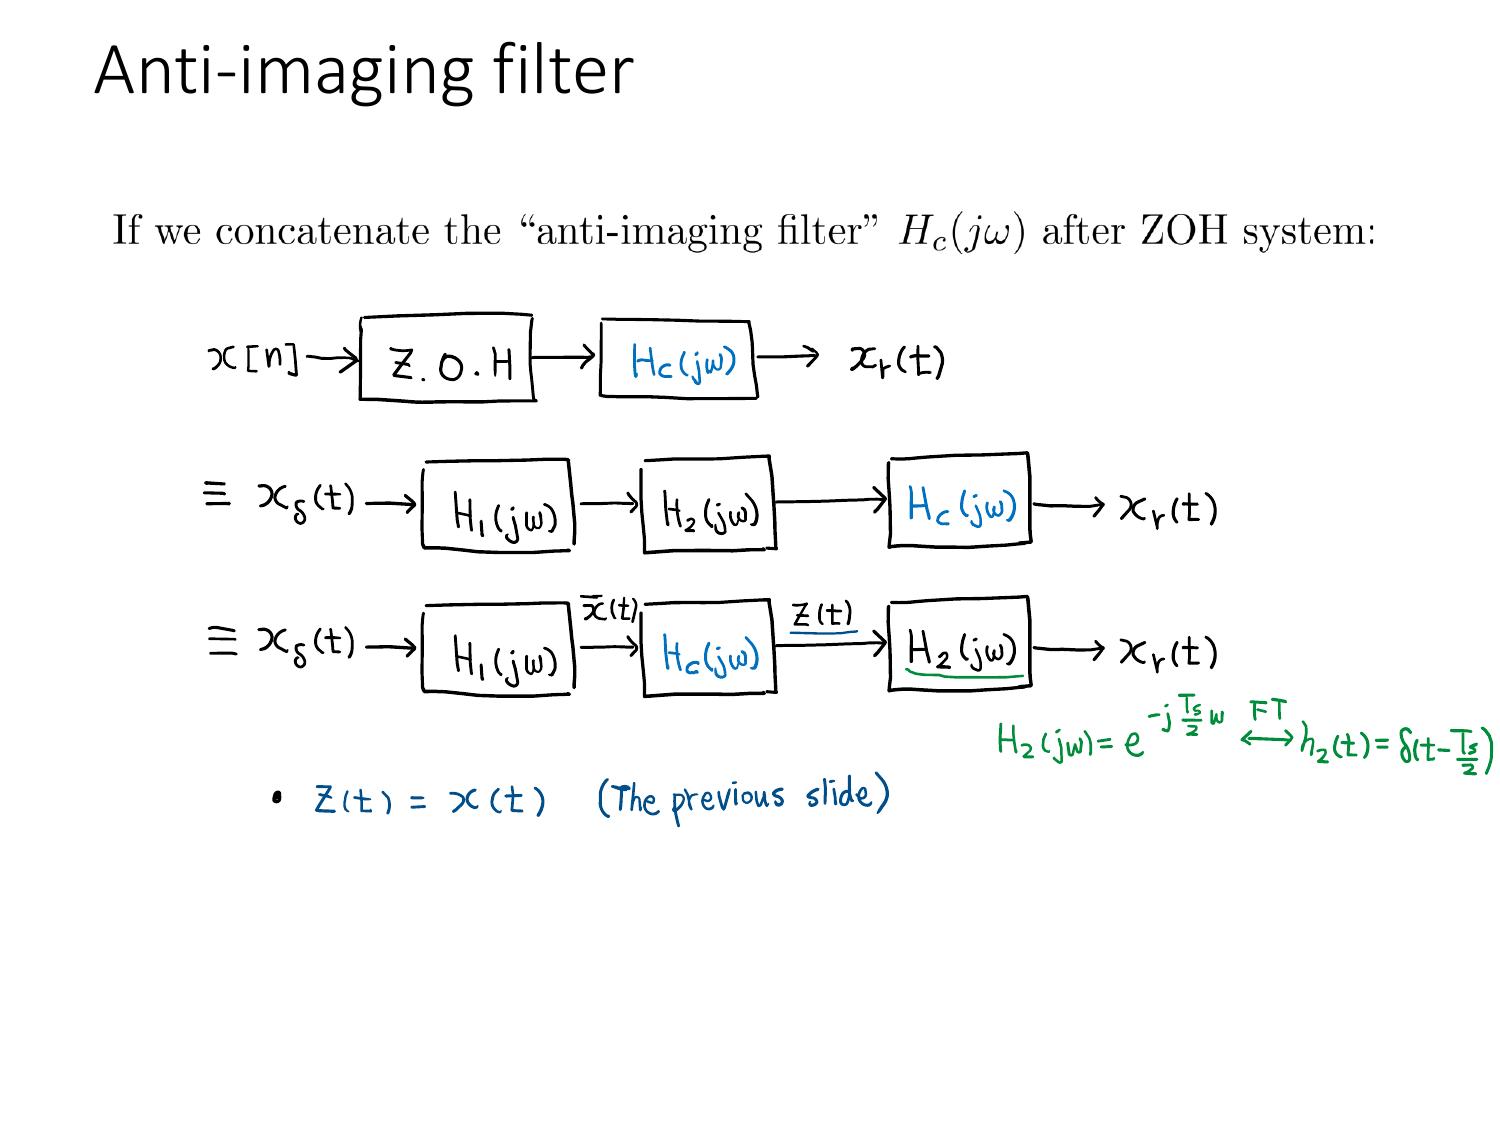 Anti-imaging filter
If we concatenate the “anti-imaging filter” H_c(jω) after ZOH system:
x[n] → Z.O.H → H_c(jω) → x_r(t)
≡ x_δ(t) → H_1(jω) → H_2(jω) → H_c(jω) → x_r(t)
≡ x_δ(t) → H_1(jω) x̄(t) → H_c(jω) z(t) → H_2(jω) → x_r(t)
H_2(jω) = e^{-j \frac{T_s}{2} ω} \overset{FT}{↔} h_2(t) = δ(t - \frac{T_s}{2})
• z(t) = x(t) (The previous slide)